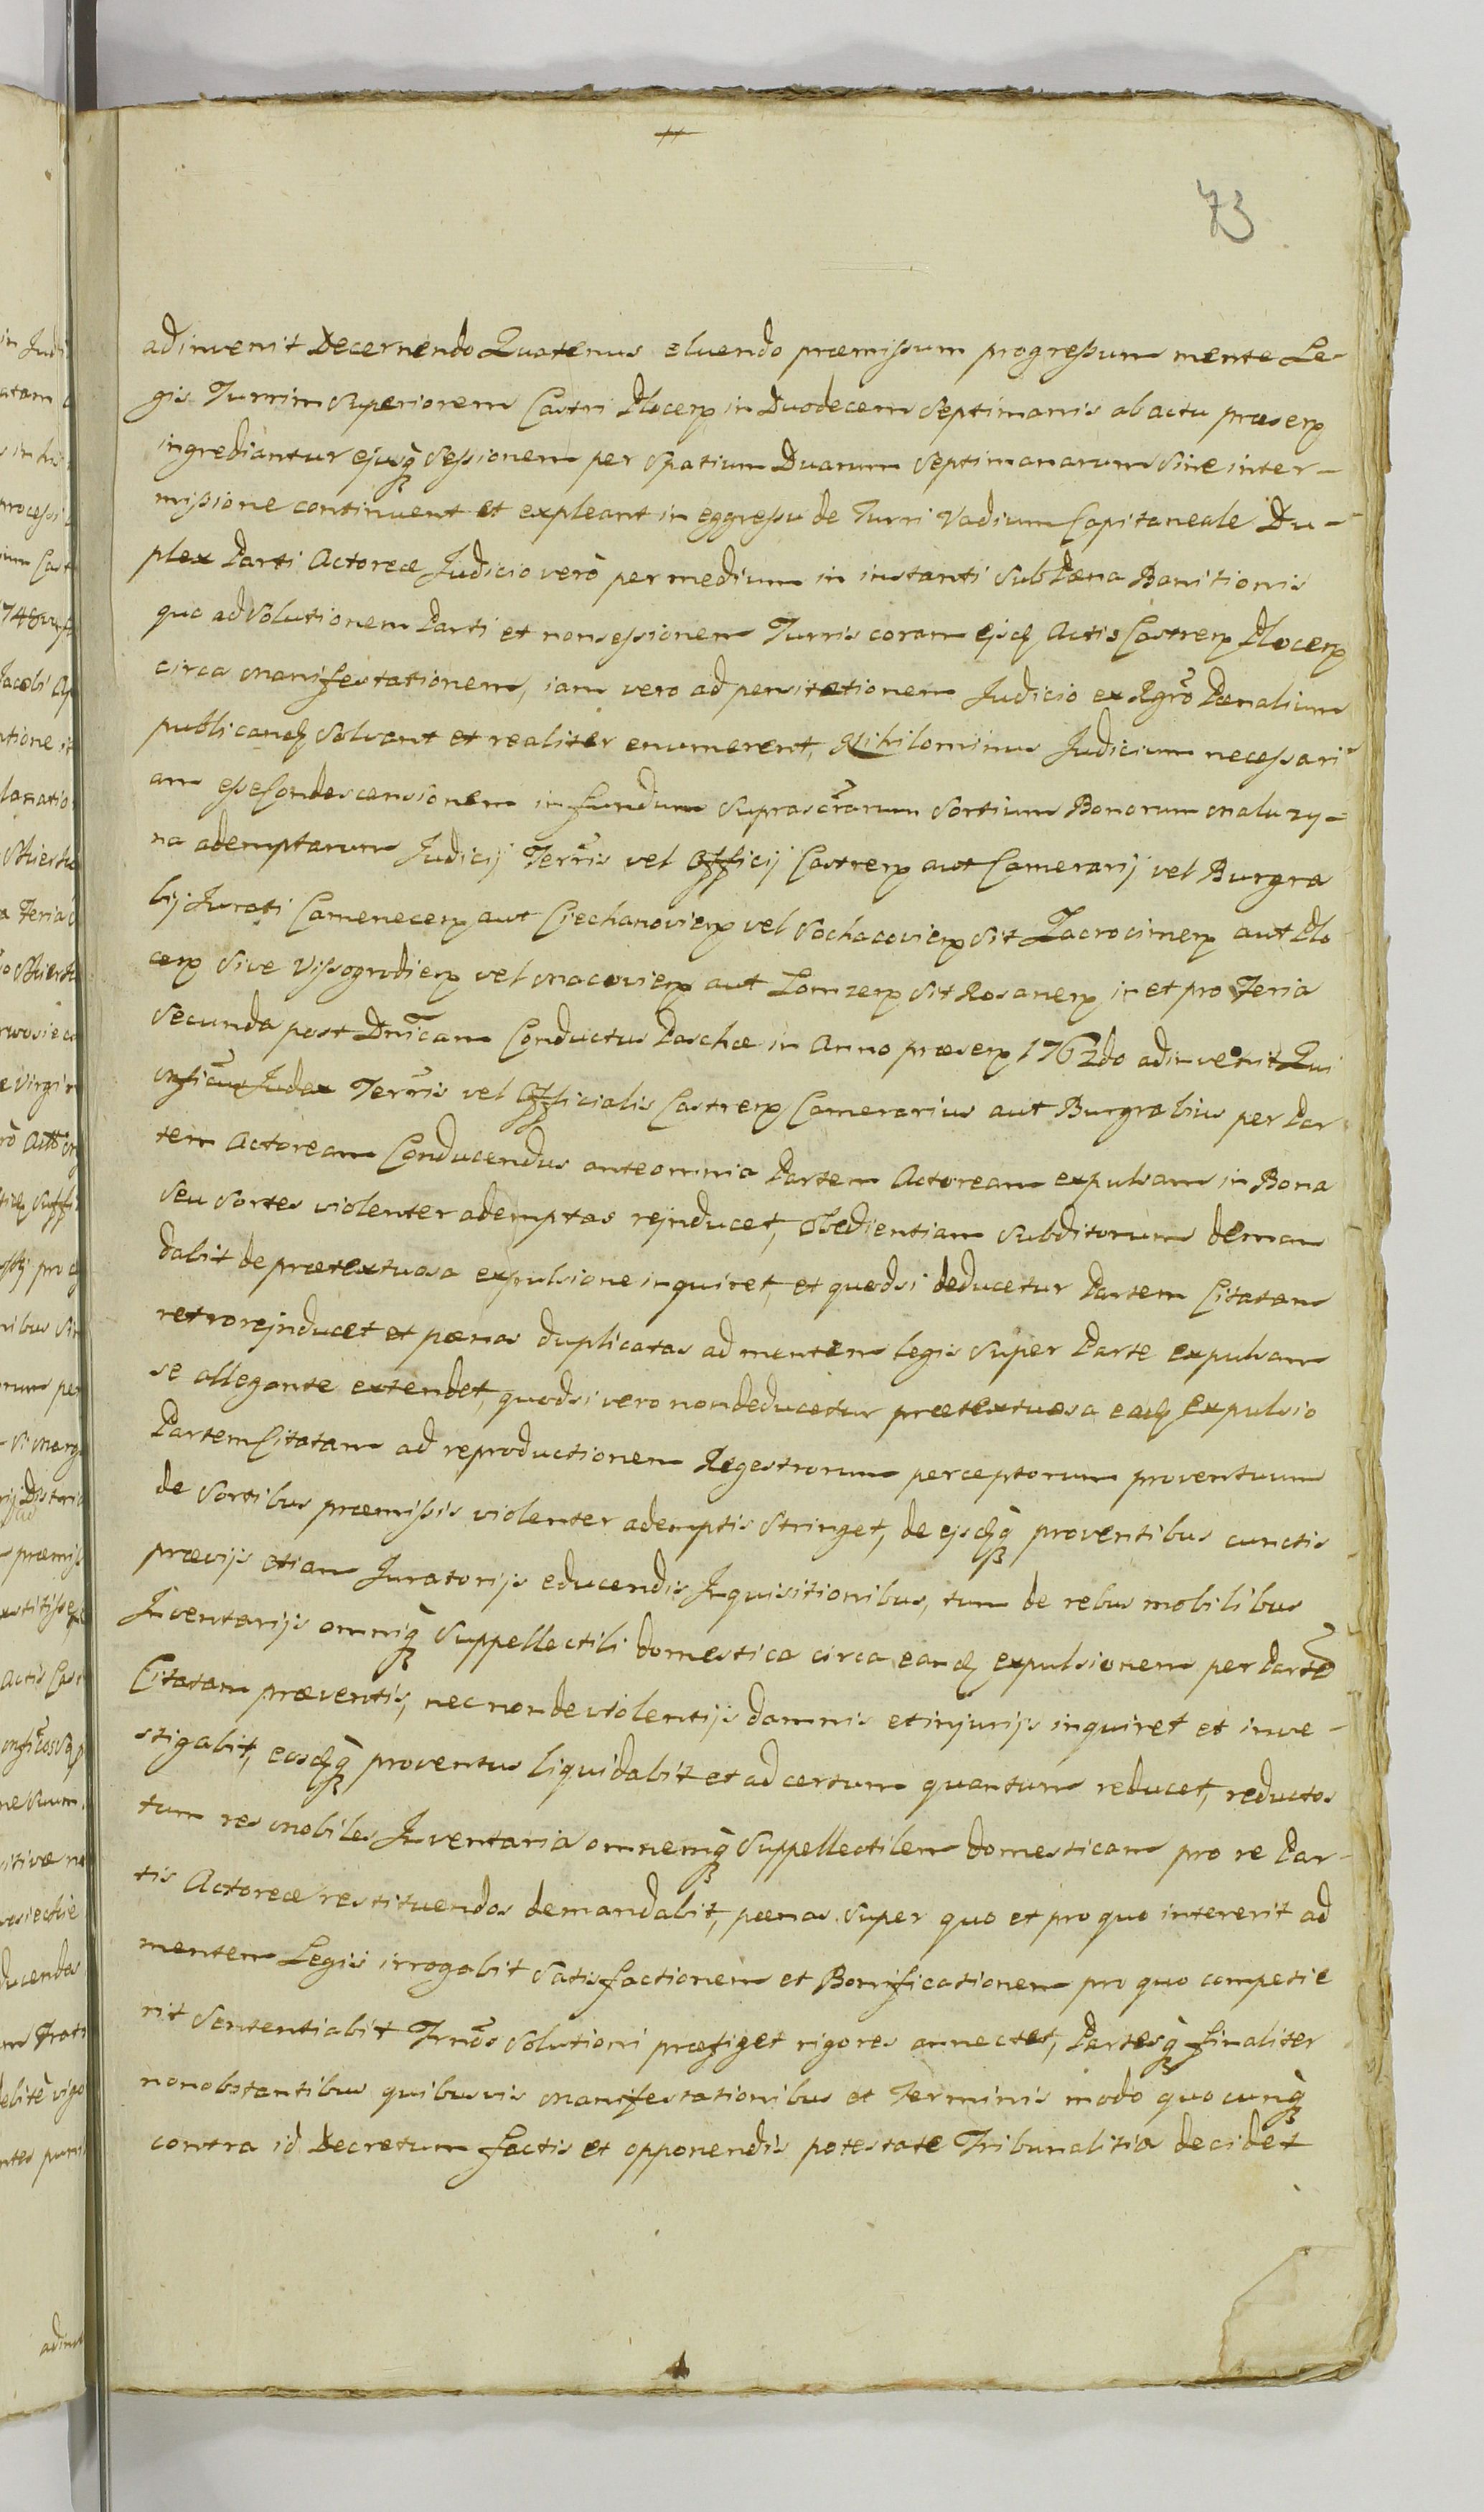 73
adinvenit Decernendo Quatenus eluendo præmissum progressum mente Le-
gis Turrim Superiorem Castri Plocen in Duodecem Septimanis ab actu præsen
ingrediantur ejusq̀ Sessionem per Spatium Duarum Septimanarum Sine inter-
missione continuent et expleant in eggressu de Turri Vadium Capitaneale Du-
plex Parti Actoreæ Judicio verò per medium in instanti Sub Pœna Banitionis
quo ad Solutionem Parti et nonsessionem Turris coram ejsd Actis Castren Plocen
circa Manifestationem, iam vero ad pensitationem Judicio ex Rgrō Pœnalium
publicand Solvant et realiter enumerent, Nihilominus Judicium necessari
am esse Condescensionem in fundum Suprascr̄arum Sortium Bonorum Maluzy-
na ademptarum Judicij Terr̄is vel Officij Castren aut Camerarij vel Burgra
bij Jurati Camenecen aut Ciechanovien vel Sochacovien Sit Zacrocimen aut Plo
cen Sive Vissogrodien vel Macovien aut Lomzen Sit Rosanen in et pro Feria
Secunda post Dnīcam Conductus Paschæ in Anno præsen 1762do adinvenit Qui
Mnficus Judex Terr̄is vel Officialis Castren Camerarius aut Burgrabius per Par
tem Actoream Conducendus anteomnia Partem Actoream expulsam in Bona
Seu Sortes violenter ademptas rejnducet, Obedientiam Subditorum deman
dabit de prætextuosa expulsione inquiret, et quodsi deducetur Partem Citatam
retrorejnducet et pœnas duplicatas ad mentem legis Super Parte expulsam
se allegante extendet, quodsi vero nondeducetur prætextuosa ead expulsio
Partem Citatam ad reproductionem Regestrorum perceptorum proventuum
de Sortibus præmissis violenter ademptis Stringet, de ejsdq̀ proventibus cunctis
prævijs etiam Juratorijs educendis Inquisitionibus, tum de rebus mobilibus
Inventarijs omniq̀ Suppellectili domestica circa eand expulsionem per Parte
Citatam præventis, nec non de violentijs damnis et injurijs inquiret et inve-
stigabit, eosdq̀ proventus liquidabit et ad certum quantum reducet, reductos
tum res Mobiles Inventaria omnemq̀ Suppellectilem domesticam pro re Par-
tis Actoreæ restituendos demandabit, pœnas Super quo et pro quo intererit ad
mentem Legis irrogabit Satisfactionem et Bonificationem pro quo competie
rit Sententiabit Trnōs Solutioni præfiget rigores annectet, Partesq̀ finaliter
nonobstantibus quibusvis Manifestationibus et Terminis modo quocunq̀
contra id Decretum factis et opponendis potestate Tribunalitia decidet